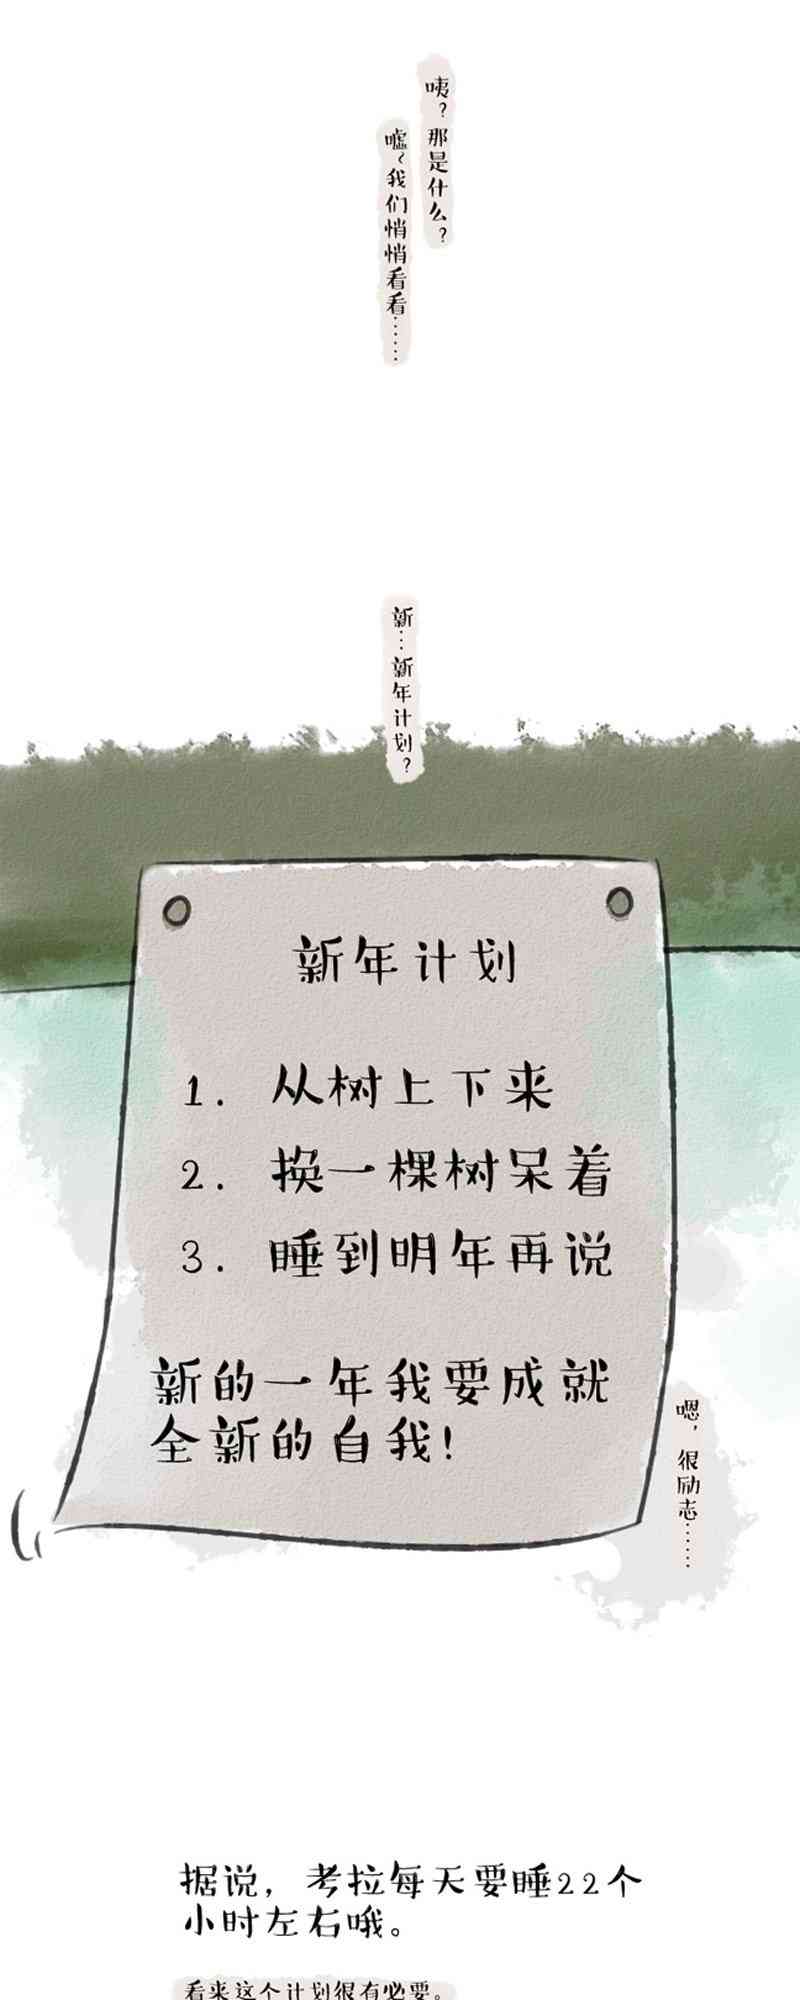 咦？那是什么？
嘘~我们悄悄看看……
新…新年计划？
新年计划
1. 从树上下来
2. 换一棵树呆着
3. 睡到明年再说
新的一年我要成就
全新的自我！
嗯，很励志……
据说，考拉每天要睡22个
小时左右哦。
看来这个计划很有必要。